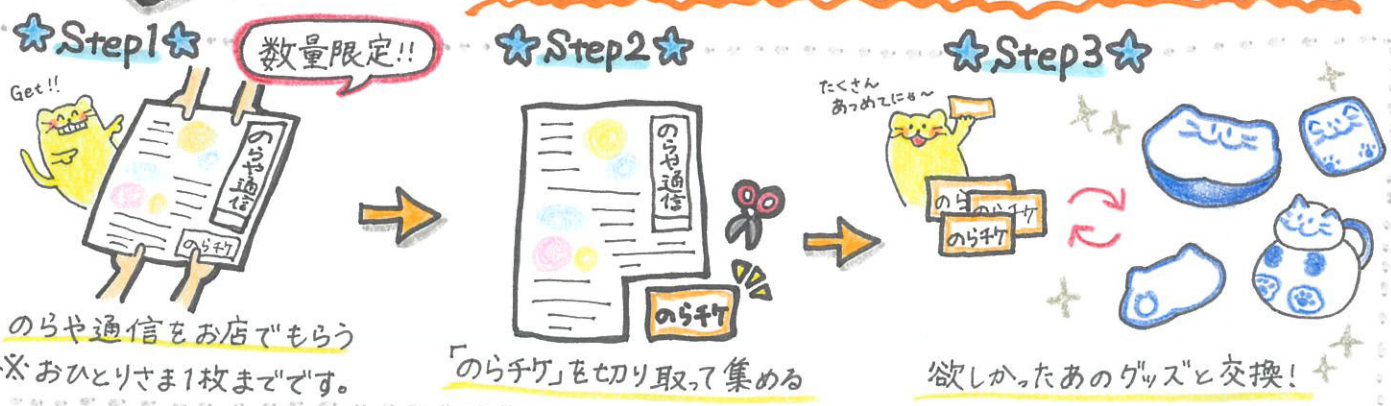 Step1
数量限定!!
Get!!
のらや通信
のらチケ
のらや通信をお店でもらう
※おひとりさま1枚までです。
Step2
のらや通信
のらチケ
「のらチケ」を切り取って集める
Step3
たくさん
あつめてにゃ～
のら
のらチケ
のらチケ
欲しかったあのグッズと交換!